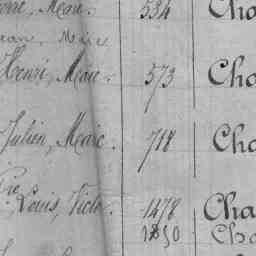 Marc. 534 Cha
Jean, Marc
Henri, Marc. 573 Cha
Julien, Marc. 718 Cha
Louis, Victor. 1478 Cha
1850 Cha